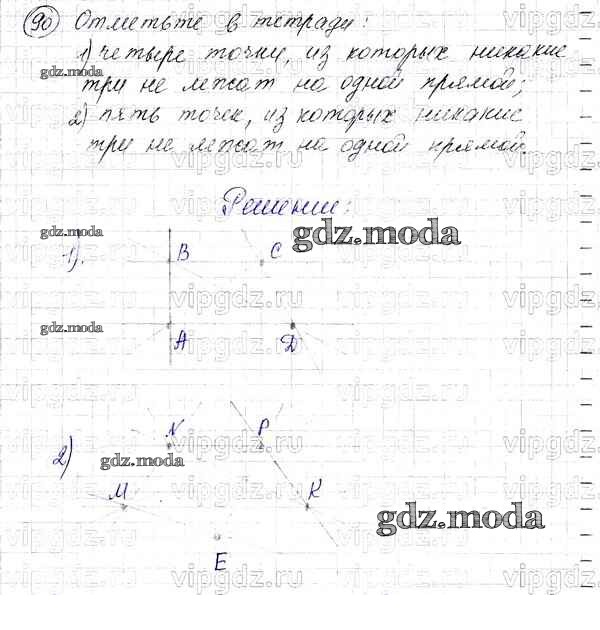 90 Отметьте в тетради:
1) четыре точки, из которых никакие
три не лежат на одной прямой;
2) пять точек, из которых никакие
три не лежат на одной прямой.
Решение:
1).
B C
A D
2)
N P
M K
E
gdz.moda
gdz.moda
gdz.moda
gdz.moda
gdz.moda
gdz.moda
vipgdz.ru